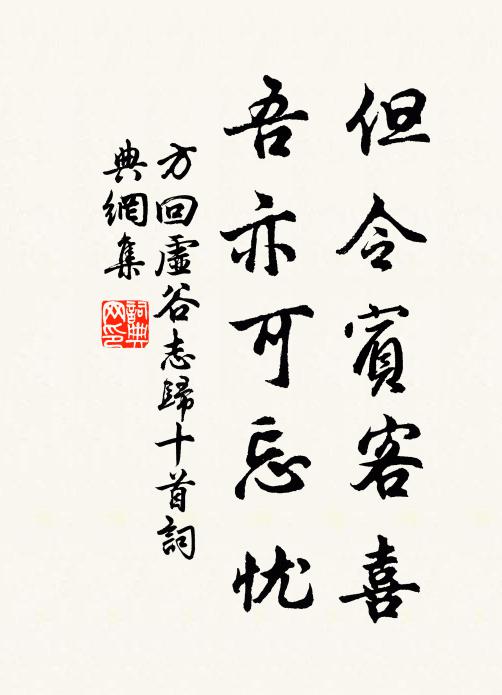 但令賓客喜
吾亦可忘忧
方回虛谷志歸十首詞
典網集
詞典
网印